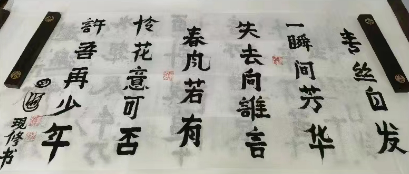 青丝白发
一瞬间芳华
失去向誰言
春风若有
怜花意可否
許吾再少年
现修书